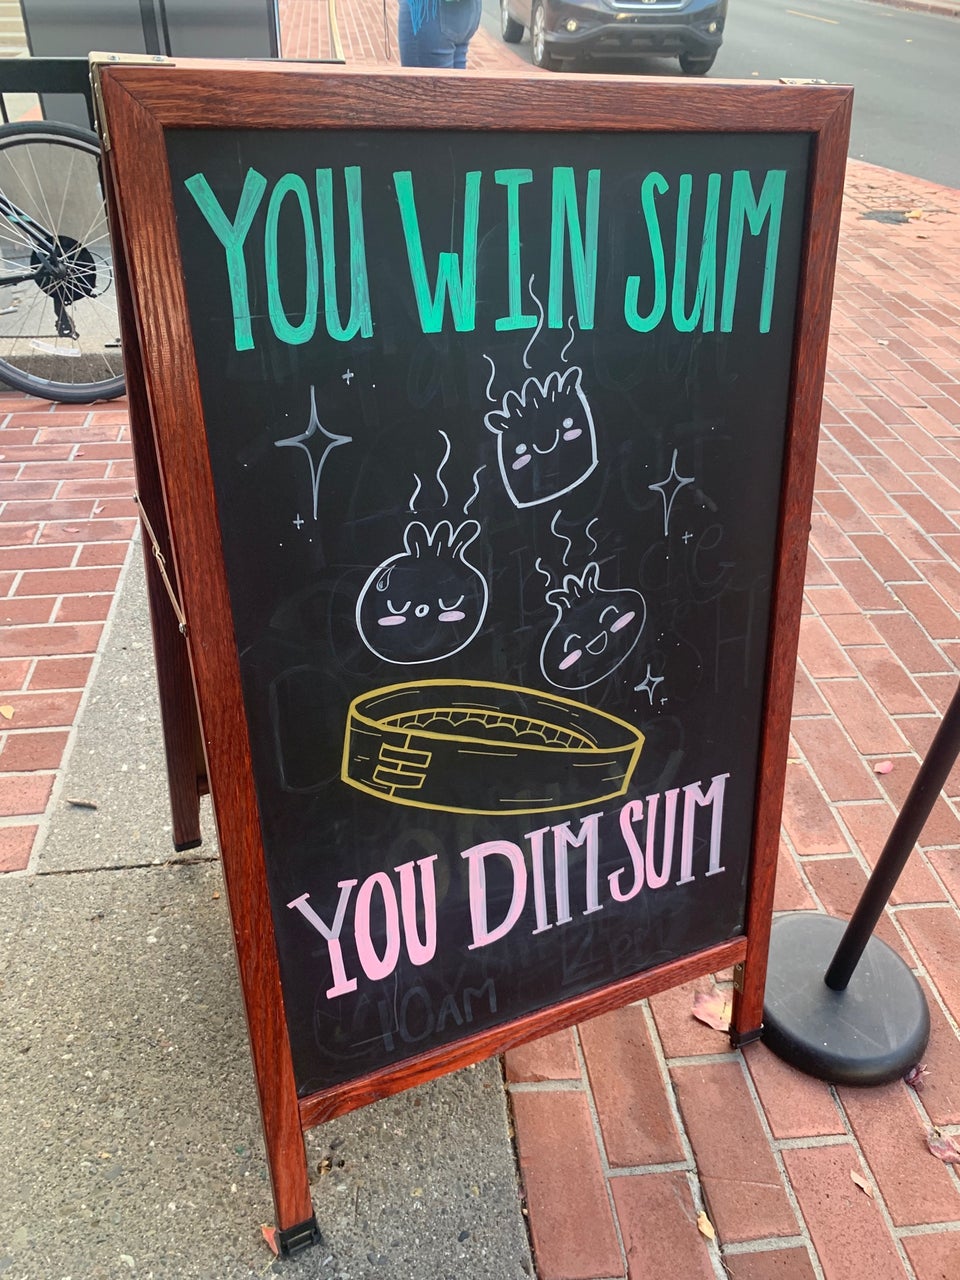 YOU WIN SUM
YOU DIM SUM
10AM